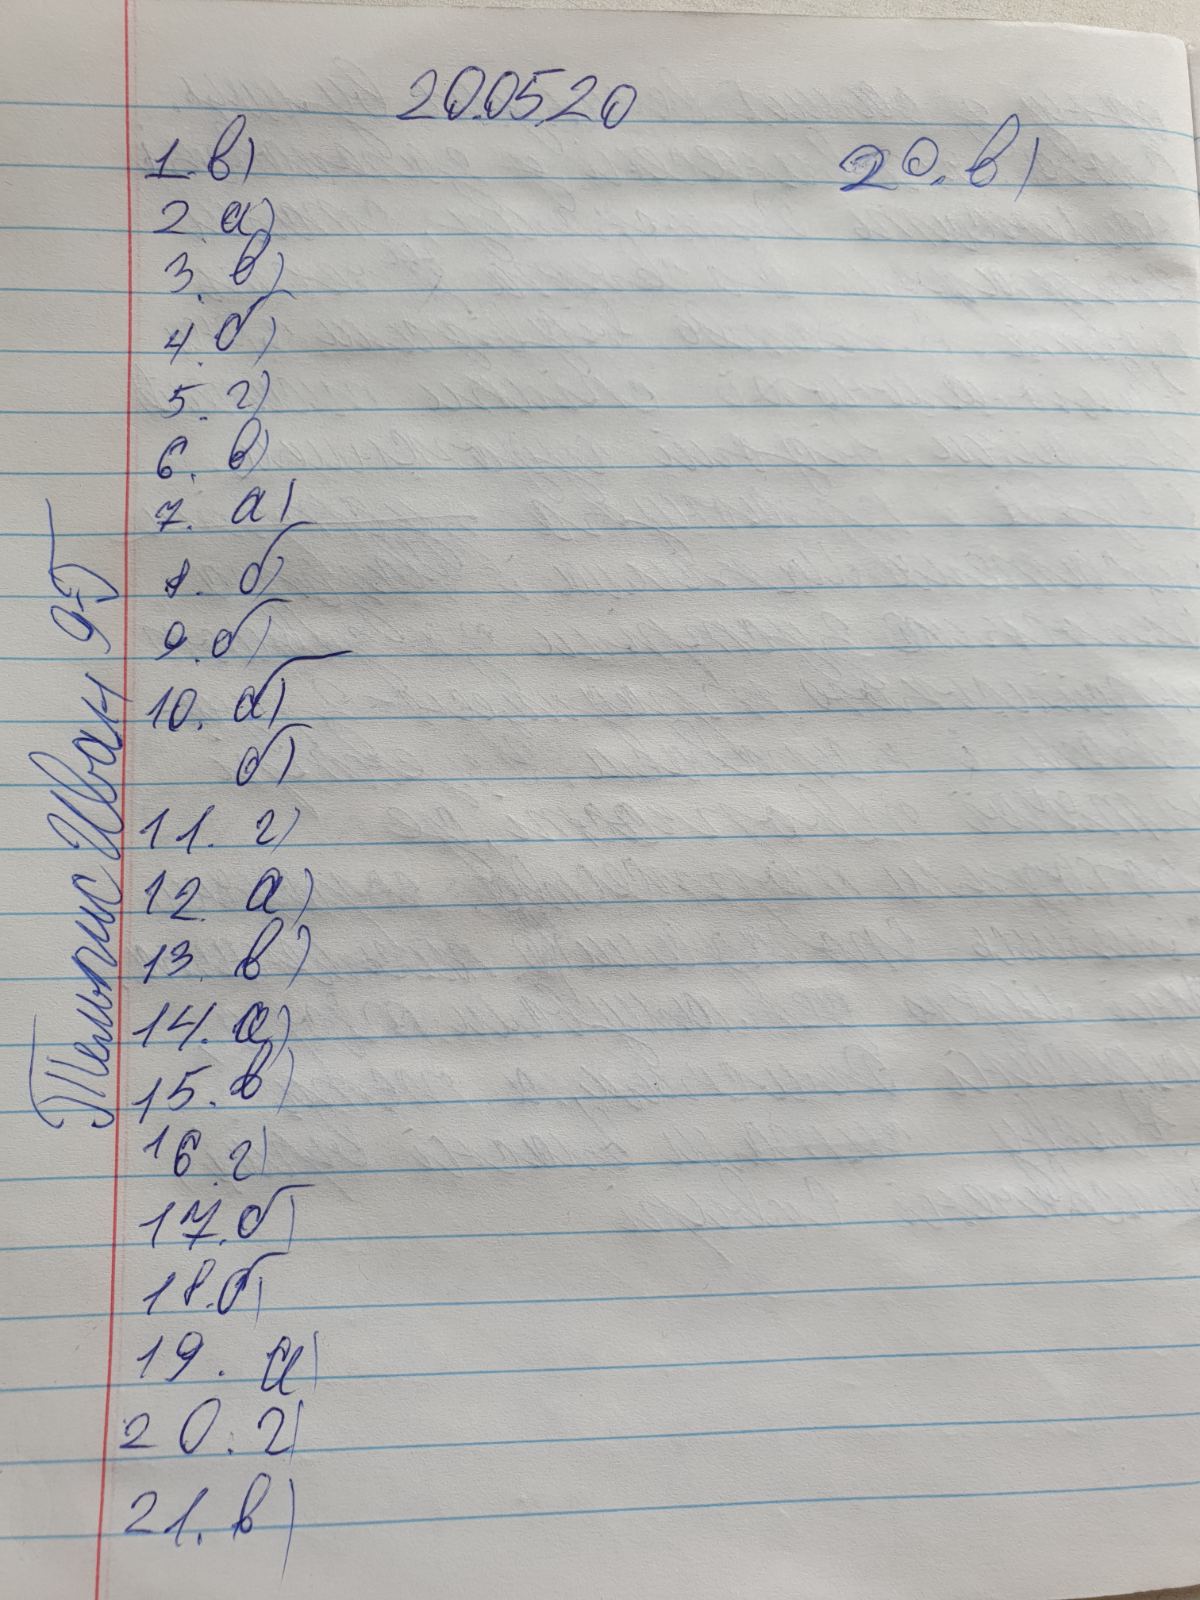 20.05.20
1. в)
2. а)
3. в)
4. б)
5. г)
6. в)
7. а)
8. б)
9. б)
10. а)
б)
11. г)
12. а)
13. в)
14. а)
15. в)
16. г)
17. б)
18. б)
19. а)
20. г)
21. в)
20. в)
Иван 9-Г